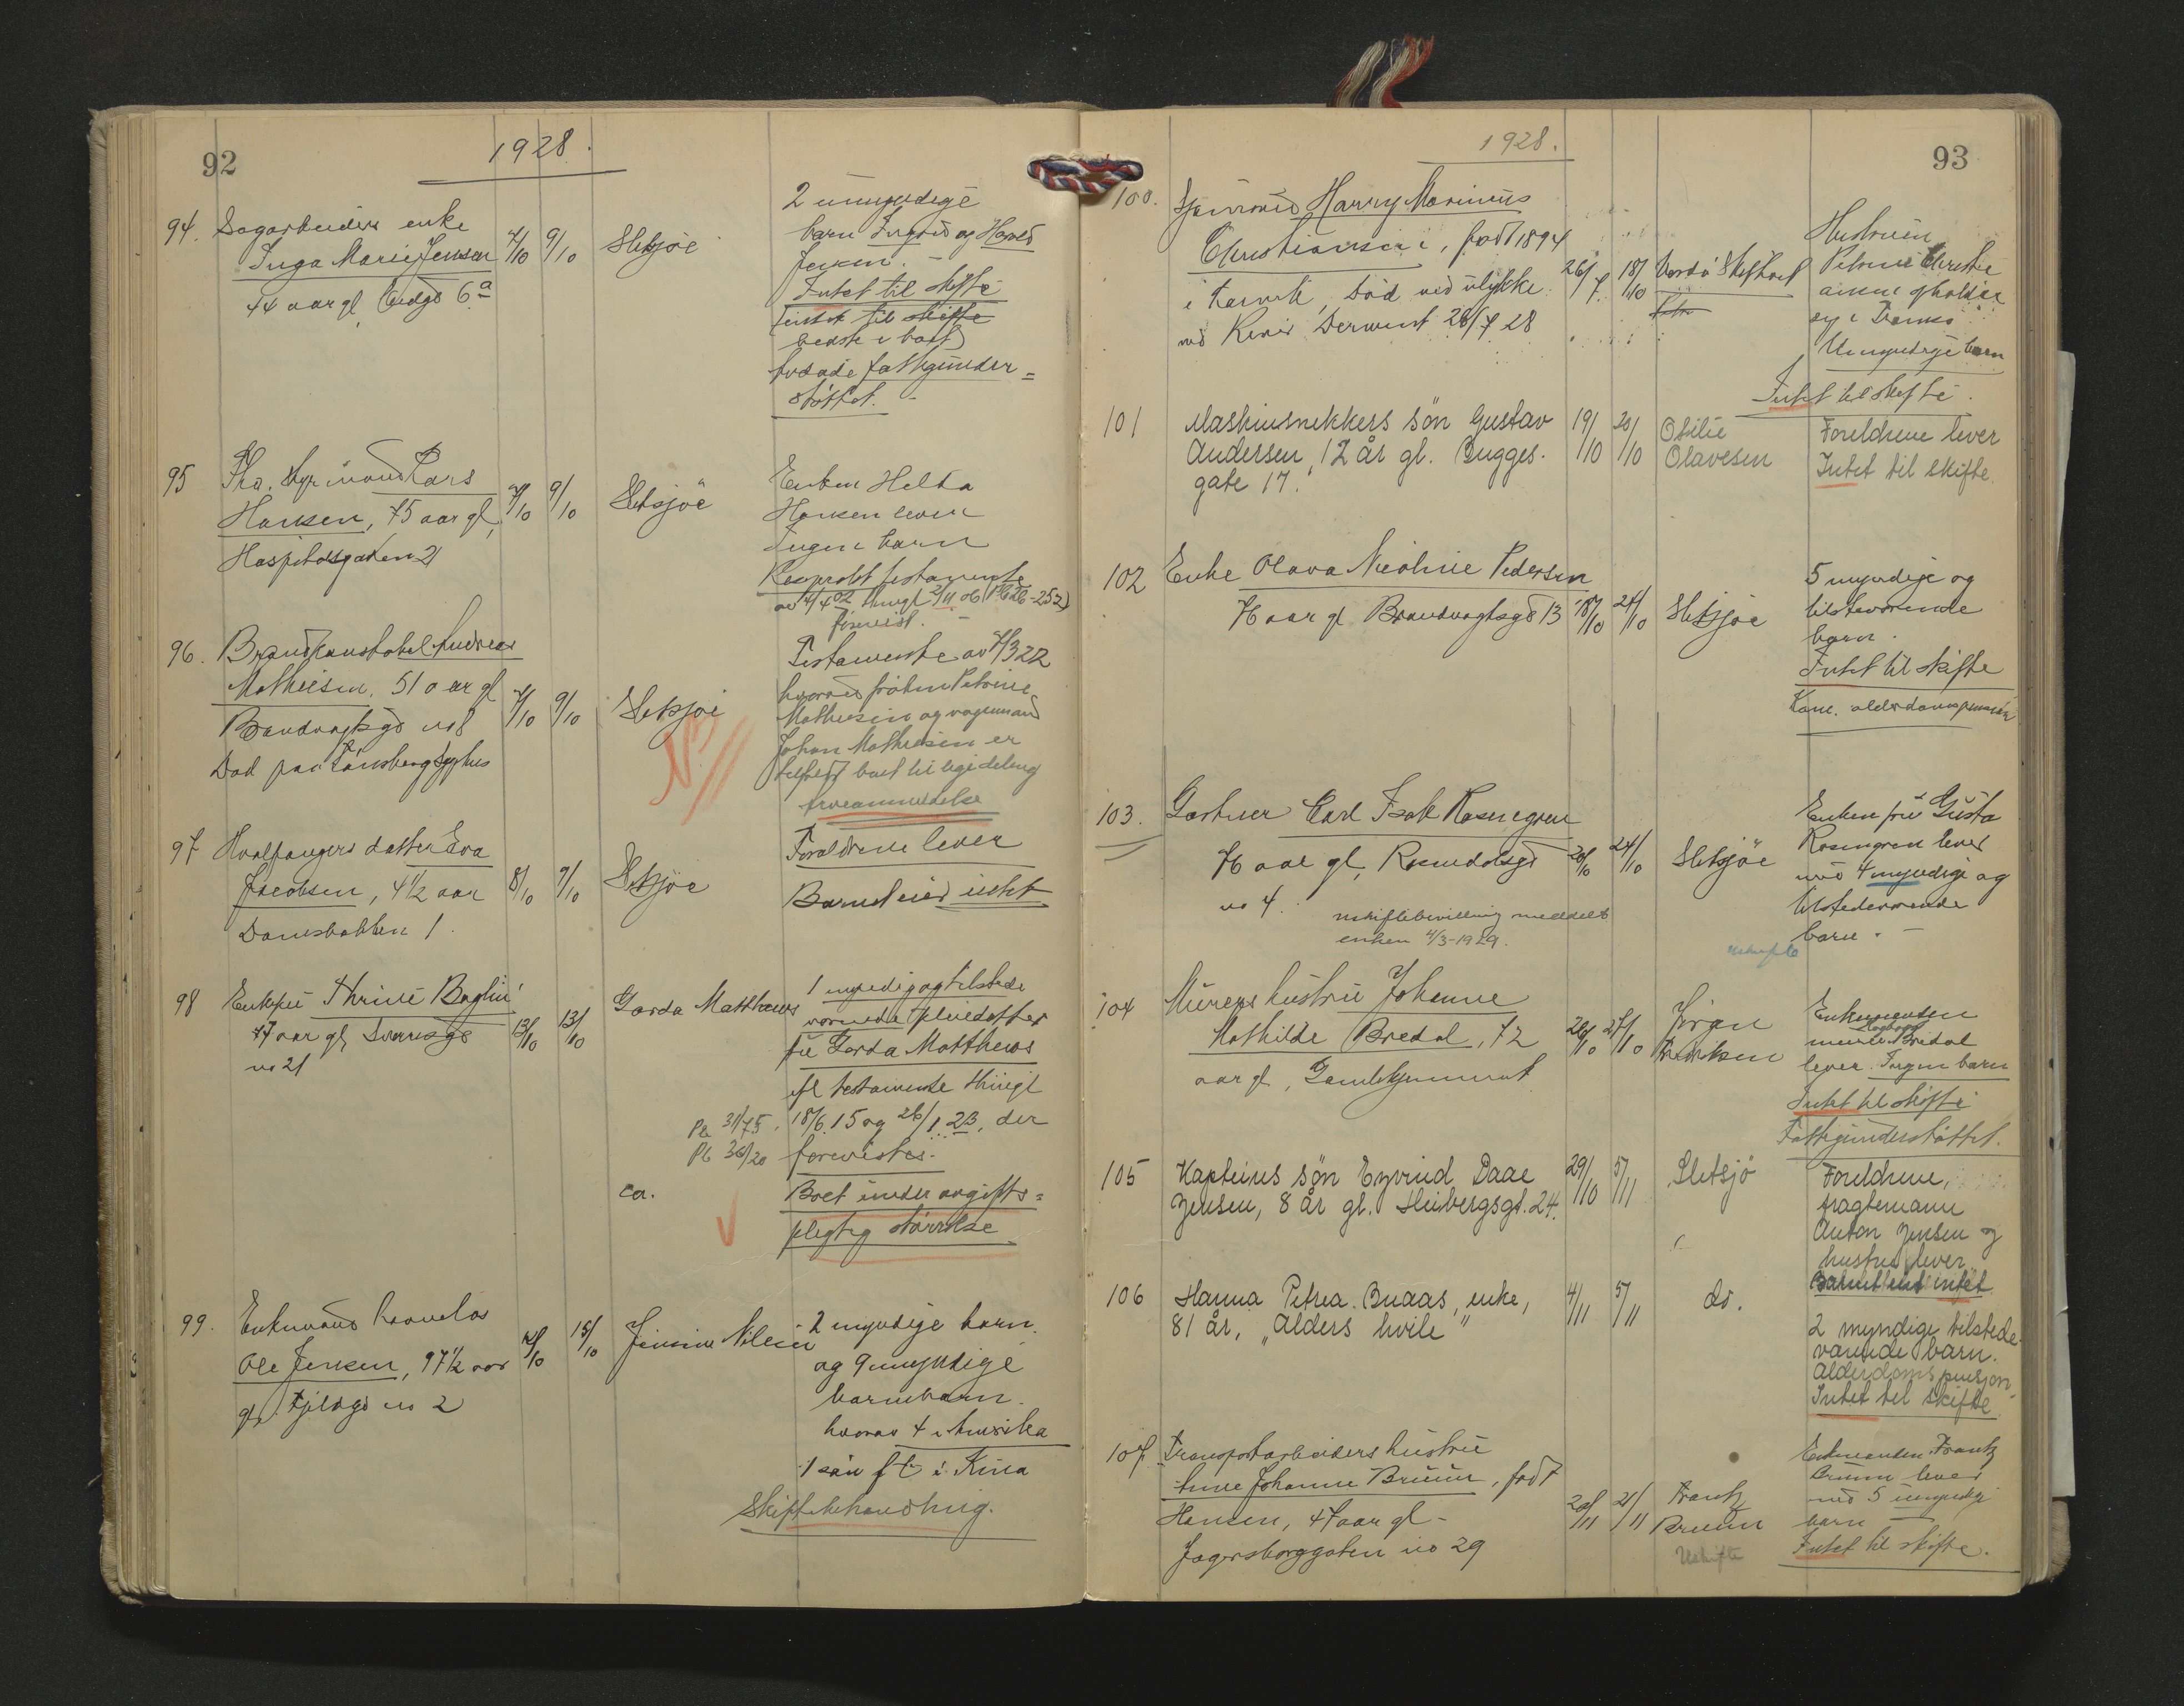 92
1928.
94. Sagarbeiders enke
Inga Marie Jensen
44 aar gl,
7/10 9/10
Sletsjøe
2 umyndige
barn Ingrid og
Jensen.
Intet til skifte
Intet til skifte
fattigunder=
støttet.
95
Lars
Hansen, 75 aar gl,
Hospitalsgaten 21
7/10 9/10
Sletsjøe
Enken Helda
Hansen lever
Ingen barn
testamente
forevist.
96. Brandkonstabel Andreas
Mathiesen, 51 aar gl
no 8
Død paa Tønsberg sygehus
7/10 9/10
Sletsjøe
NB
Testamente av
hvorved frøken Petrine
Mathiesen og vognmand
Johan Mathiesen er
boet til lige deling
Arveanmeldelse
97 Hvalfangers datter Eva
Jacobsen, 4 1/2 aar
Danebakken 1.
8/10 9/10
Sletsjøe
Forældrene lever
Barnet eied intet
98 Enkefru Thrine Boglin
77 aar gl, Svensgd
no 21
13/10 13/10
Gerda Matthews
1 myndig og tilstede
værende pleiedatter
fru Gerda Matthews
ifl testamente thingl
Pb 31/75. 18/6 15 og 26/1 23, der
Pb 36/20 forevistes.
ca.
Boet under avgifts=
pligtig størrelse
99. Enkemand
Ole Jensen, 97 1/2 aar
gl, no 2
15/10
Nilsen
2 myndige barn
og 9 umyndige
barnebarn.
hvorav 4 i Amerika
1 søn f.t. i Kina
Skiftebehandling.
93
1928.
100. Sjømand Harry Marinius
Christiansen, født 1894
i Larvik, død ved ulykke
ved River Derwent 26/7 28
26/7 18/10
Vardø
Hustruen
Petrine Christi
ansen opholder
sig i
Umyndige barn
Intet til skifte.
101 Maskinsnekkers søn Gustav
Andersen, 12 år gl. Bugges-
gate 17.
19/10 20/10
Otilie
Olavesen
Foreldrene lever
Intet til skifte.
102 Enke Olava Nicoline Pedersen
76 aar gl Brandvagtsgd 13
18/10 24/10
Sletsjøe
5 myndige og
tilsteværende
barn.
Intet til skifte
Kom. alderdomspensjon
103. Gartner Carl Isak Rosengren
76 aar gl, Rosendalsgd
no 4.
20/10 24/10
Sletsjöe
Enken fru Gusta
Rosengren lever
med 4 myndige og
tilstedeværende
barn.
uskiftebevilling meddelt
enken 4/3-1929.
Uskifte
104 Murers hustru Johanne
Mathilde Bredal, 72
aar gl,
26/10 27/10
Jørgen
Enkemanden
murer Bredal
lever. Ingen barn
Intet til skifte
Fattigunderstøttet.
105 Kapteins søn Eyvind Daae
Jensen, 8 år gl. Heibergsgt. 24.
29/10 5/11
Sletsjø
Foreldrene,
fragtemann
Anton Jensen og
hustru lever.
Barnet eied intet
106 Hanna Petrea Buaas, enke,
81 år, "Alders hvile"
4/11 5/11
do.
2 myndige tilstede-
værende barn.
Alderdomspensjon.
Intet til skifte
107. Transportarbeiders hustru
Anne Johanne Bruun, født
Hansen, 47 aar gl -
Jegersborggaten no 29
20/11 21/11
Frantz
Bruun
Uskifte
Enkemanden Frantz
Bruun lever
med 5 umyndige
barn
Intet til skifte.